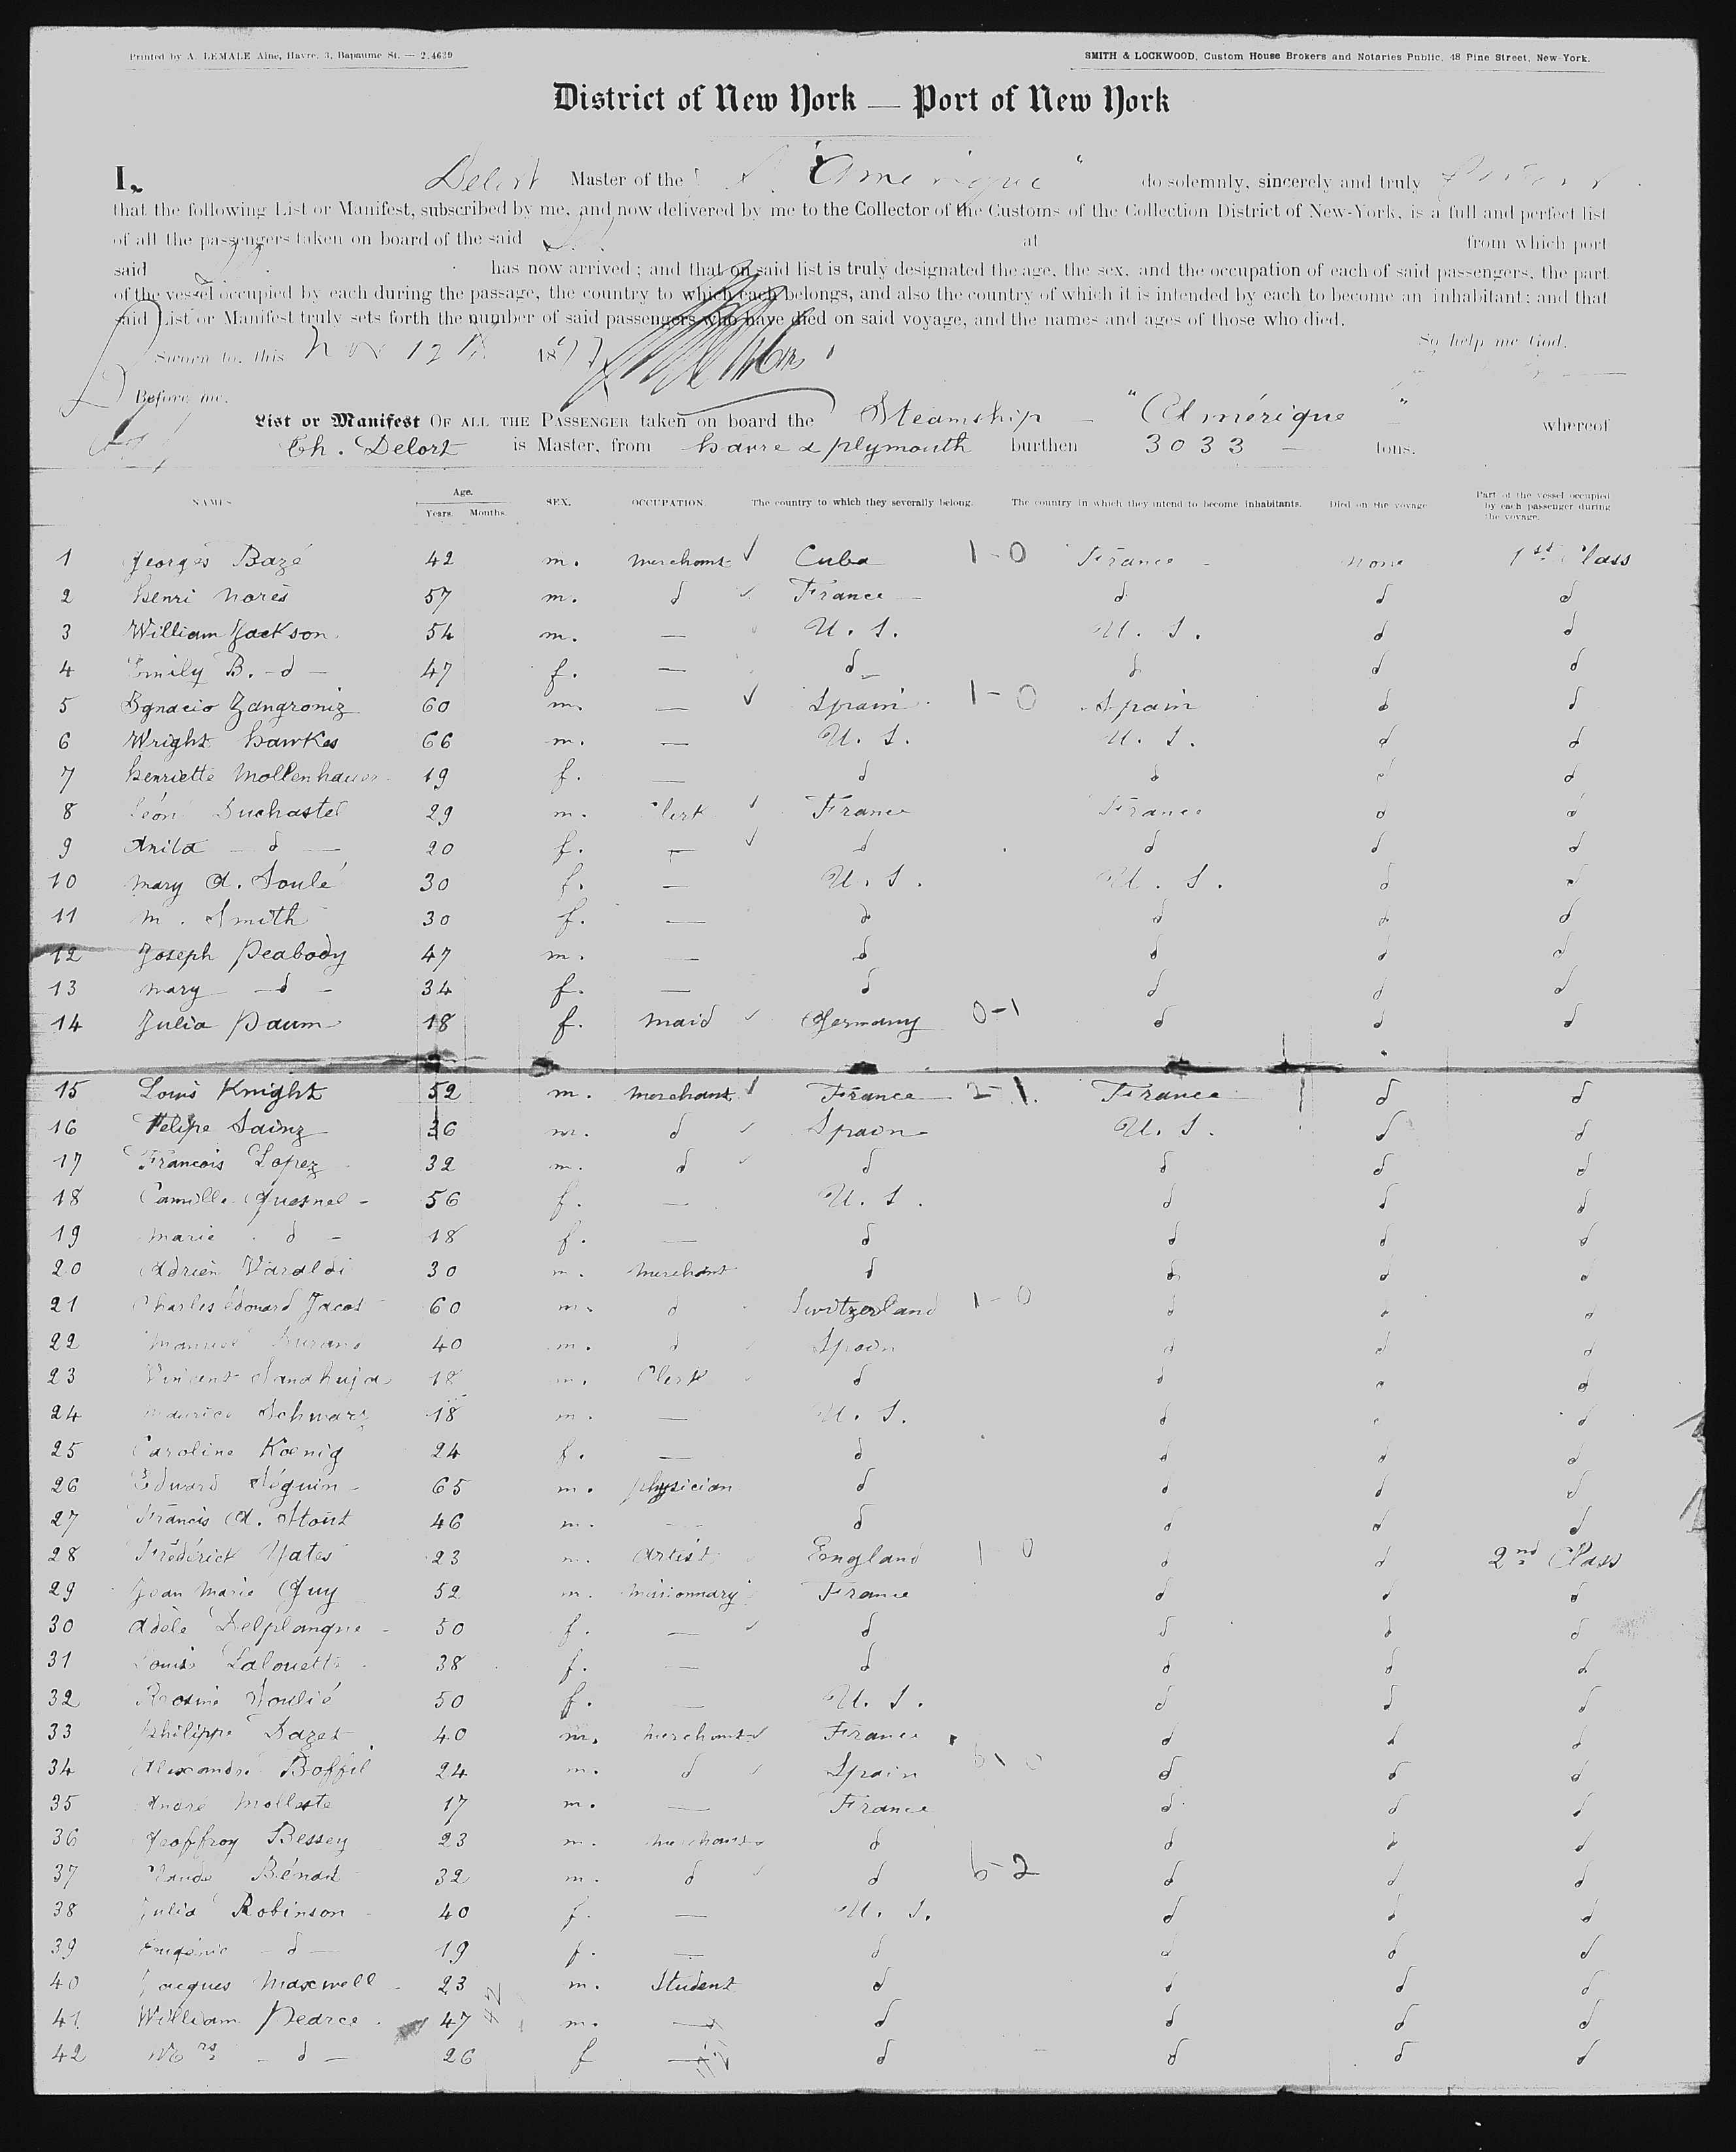 Printed by A. LEMALE Aîné, Havre, 3, Bapaume St. — 2.4629
SMITH & LOCKWOOD, Custom House Brokers and Notaries Public, 48 Pine Street, New York.
District of New York — Port of New York
I, Delort Master of the Amérique" do solemnly, sincerely and truly
that the following List or Manifest, subscribed by me, and now delivered by me to the Collector of the Customs of the Collection District of New-York, is a full and perfect list
of all the passengers taken on board of the said at from which port
said has now arrived; and that on said list is truly designated the age, the sex, and the occupation of each of said passengers, the part
of the vessel occupied by each during the passage, the country to which each belongs, and also the country of which it is intended by each to become an inhabitant; and that
said List or Manifest truly sets forth the number of said passengers who have died on said voyage, and the names and ages of those who died.
So help me God.
Sworn to, this Nov 12th 1877
Before me.
List or Manifest OF ALL THE PASSENGER taken on board the Steamship — "Amérique" whereof
Ch. Delort is Master, from havre & plymouth burthen 3033 — tons.
NAMES Age. Years. Months. SEX. OCCUPATION. The country to which they severally belong. The country in which they intend to become inhabitants. Died on the voyage Part of the vessel occupied by each passenger during the voyage.
1 Georges Bazé 42 m. merchant ✓ Cuba 1-0 France - none 1st Class
2 henri Norès 57 m. d ✓ France — d d d
3 William Jackson 54 m. — U. S. U. S. d d
4 Emily B. - d - 47 f. — d d d d
5 Ignacio Zangroniz 60 m. — ✓ Spain 1-0 Spain d d
6 Wright hawkes 66 m. — U. S. U. S. d d
7 henriette Mollenhauer 19 f. — d d d d
8 Léon Duchastel 29 m. Clerk ✓ France France d d
9 Anita — d — 20 f. — ✓ d d d d
10 mary A. Soulé 30 f. — U. S. U. S. d d
11 m. Smith 30 f. — d d d d
12 Joseph Peabody 47 m. — d d d d
13 mary — d — 34 f. — d d d d
14 Julia Paum 18 f. maid ✓ Germany 0-1 d d d
15 Louis Knight 52 m. merchant ✓ France 2-1 France d d
16 Felipe Sainz 36 m. d ✓ Spain U. S. d d
17 Francois Lopez 32 m. d ✓ d d d d
18 Camille Quesnel - 56 f. — U. S. d d d
19 marie - d - 18 f. — d d d d
20 Adrien Varaldi 30 m. merchant d d d d
21 Charles Edouard Jacot 60 m. d Switzerland 1-0 d d d
22 Manuel Durand 40 m. d Spain d d d
23 Vincent Sandhuja 18 m. Clerk d d d d
24 Maurice Schwarz 18 m. — U. S. d d d
25 Caroline Koenig 24 f. — d d d d
26 Edward Séguin - 65 m. physician d d d d
27 Francis A. Stout 46 m. — d d d d
28 Frédérick Yates 23 m. artist England 1 0 d d 2nd Class
29 Jean Marie Guy 52 m. missionnary France d d d
30 Adèle Delplanque - 50 f. — ✓ d d d d
31 Louise Lalouette 38 f. — d d d d
32 Rosine Soulié 50 f. — U. S. d d d
33 Philippe Dazet 40 m. merchant ✓ France d d d
34 Alexandre Boffil 24 m. d ✓ Spain d d d
35 André Molleste 17 m. — France d d d
36 Geoffroy Bessey 23 m. merchant ✓ d d d d
37 Claude Bénoit 32 m. d ✓ d 6-2 d d d
38 Julia Robinson 40 f. — U. S. d d d
39 Eugénie — d — 19 f. — d d d d
40 Jacques Maxwell 23 m. Student d d d d
41 William Pearce 47 m. — d d d d
42 Mrs — d — 26 f — d d d d